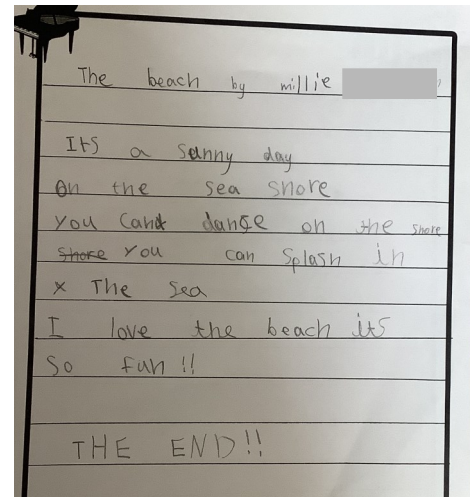 The beach by millie
Its a sunny day
on the sea shore
you can dance on the shore
you can splash in
x The sea
I love the beach its
So fun!!
THE END!!